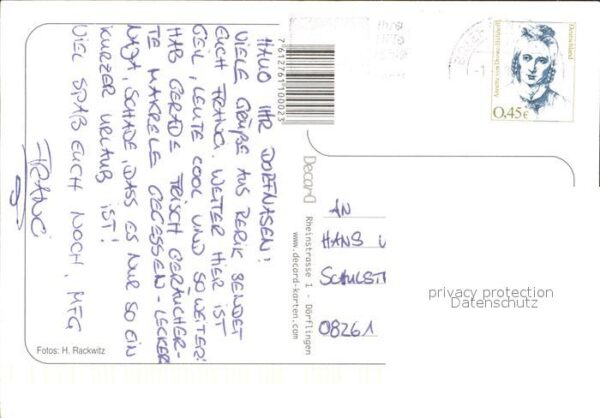 HALLO IHR DORFNASEN!
VIELE GRÜßE AUS RERIK SENDET
EUCH FRANCI. WETTER HIER IST
GEIL, LEUTE COOL UND SO WEITER!
HAB GERADE FRISCH GERÄUCHER-
TE MAKRELE GEGESSEN - LECKER
NAJA, SCHADE, DASS ES NUR SO EIN
KURZER URLAUB IST!
VIEL SPAß EUCH NOCH, MFG
FRANCI
Fotos: H. Rackwitz
7612761100023
Decard
Rheinstrasse 1 - Dörflingen
www.decard-karten.com
Deutschland
Annette von Droste-Hülshoff
0,45€
AN
HANS
SCHULST
08261
privacy protection
Datenschutz